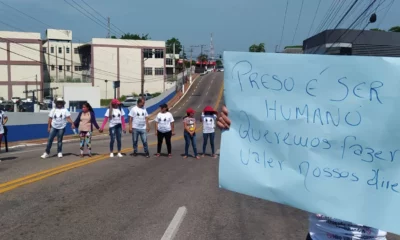 PRESO É SER
HUMANO
Queremos fazer
valer nossos